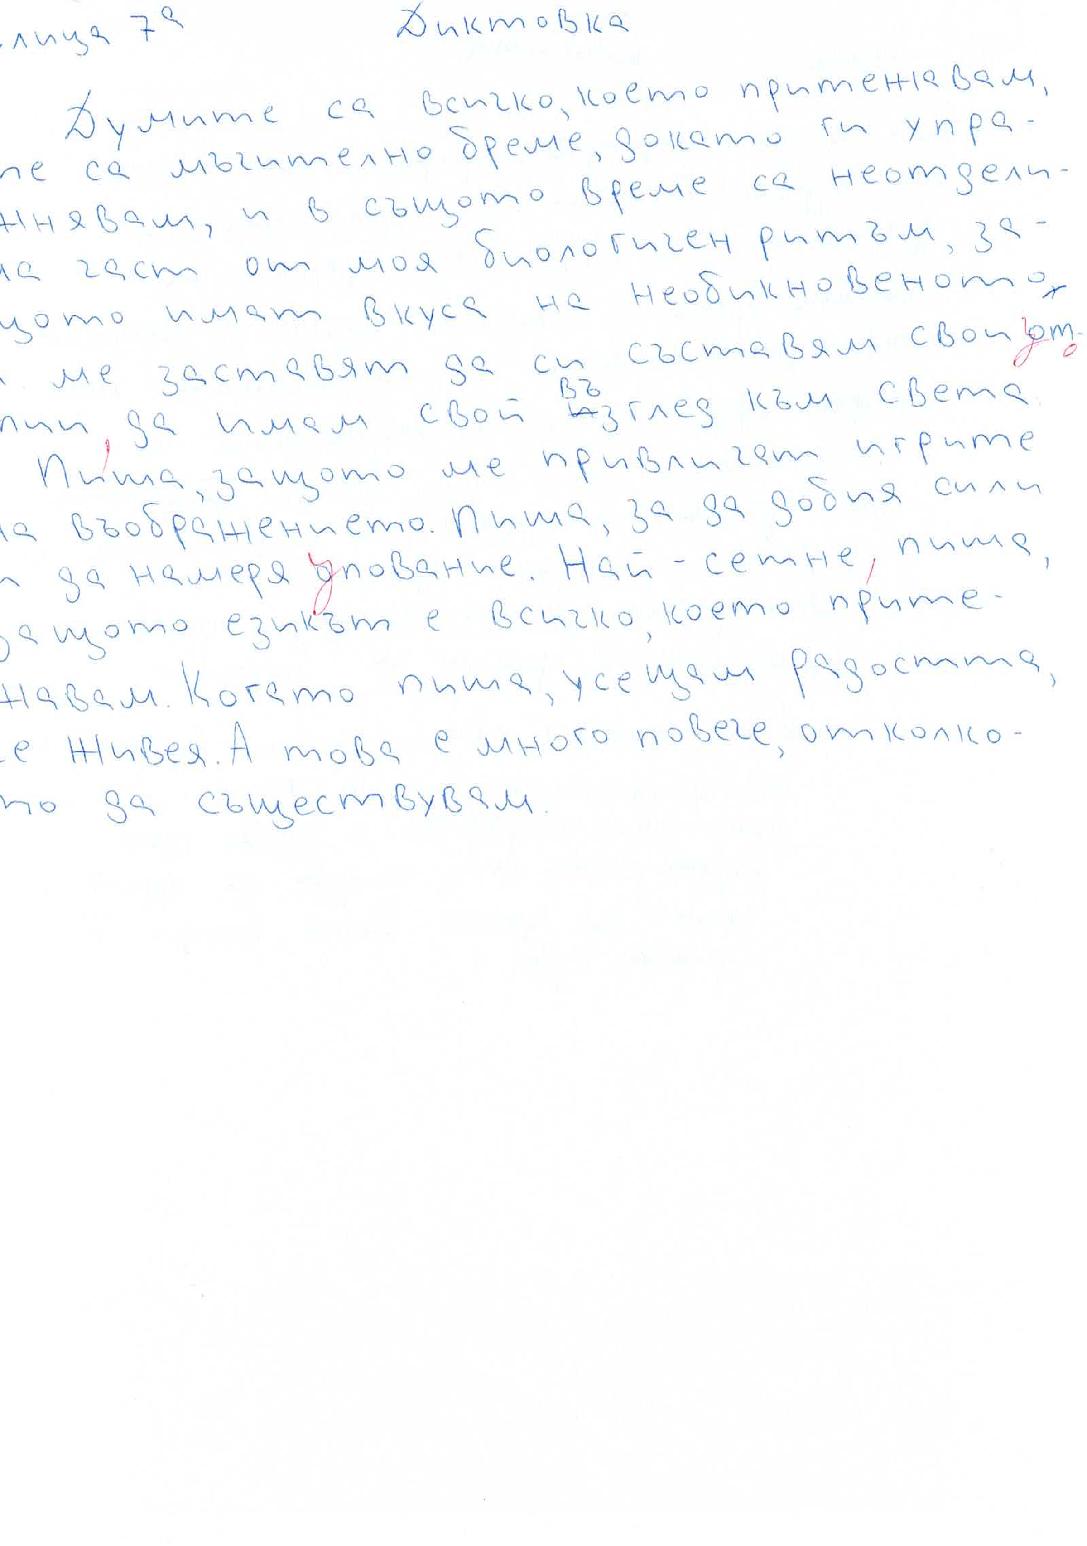 лица 7а Диктовка
Думите са всичко, което притежавам,
те са мъчително бреме, докато ги упра-
жнявам, и в същото време са неотдели-
ма част от моя биологичен ритъм, за-
щото имат вкуса на необикновеното,
и ме заставят да си съставям свои ут-
пии, да имам свой възглед към света.
Пиша, защото ме привличат игрите
на въображението. Пиша, за да добия сили
и да намеря упование. Най-сетне, пиша,
защото езикът е всичко, което прите-
жавам. Когато пиша, усещам радостта,
че живея. А това е много повече, отколко-
то да съществувам.